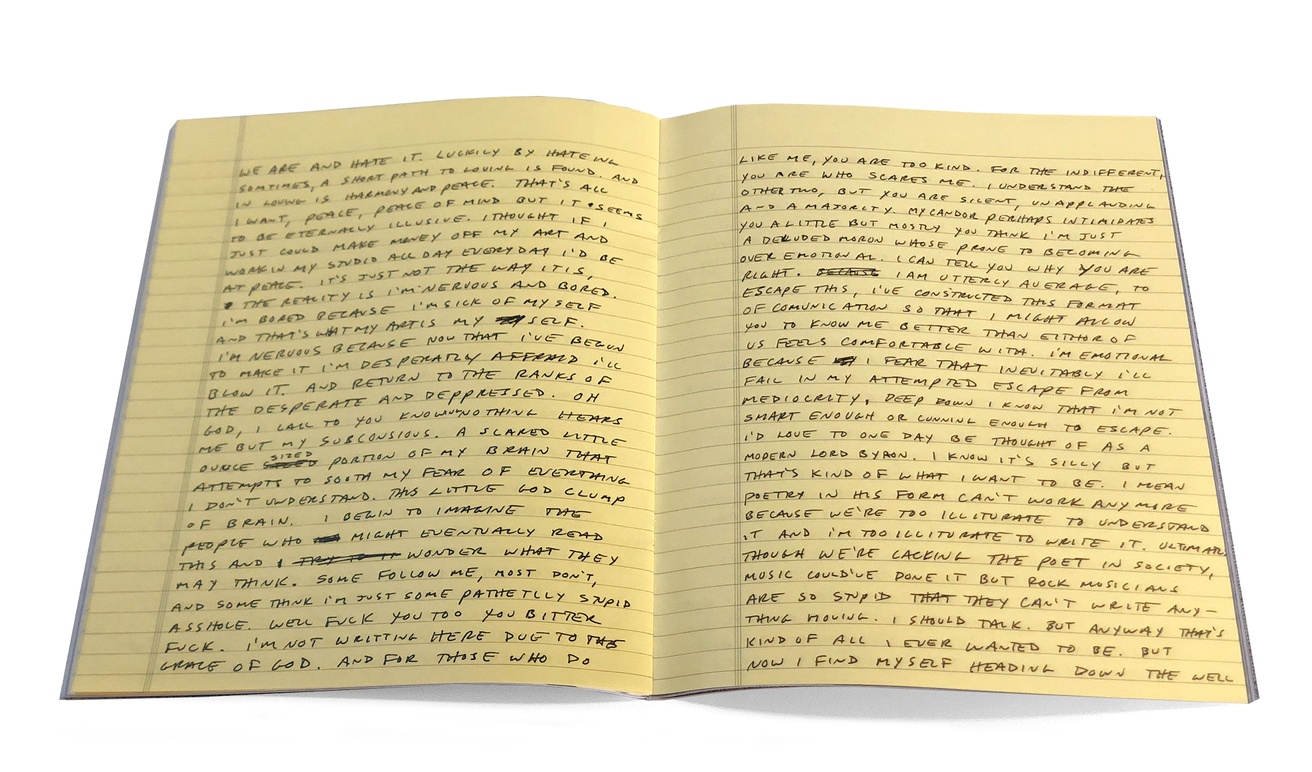 WE ARE AND HATE IT. LUCKILY BY HATEING
SOMTIMES, A SHORT PATH TO LOVING IS FOUND. AND
IN LOVING IS HARMONY AND PEACE. THAT'S ALL
I WANT, PEACE, PEACE OF MIND BUT IT SEEMS
TO BE ETERNALLY ILLUSIVE. I THOUGHT IF I
JUST COULD MAKE MONEY OFF MY ART AND
WORK IN MY STUDIO ALL DAY EVERYDAY I'D BE
AT PEACE. IT'S JUST NOT THE WAY IT IS,
THE REALITY IS I'M NERVOUS AND BORED.
I'M BORED BECAUSE I'M SICK OF MYSELF
AND THAT'S WHAT MY ART IS MY SELF.
I'M NERVOUS BECAUSE NOW THAT I'VE BEGUN
TO MAKE IT I'M DESPERATLY AFFRAID I'LL
BLOW IT. AND RETURN TO THE RANKS OF
THE DESPERATE AND DEPPRESSED. OH
GOD, I CALL TO YOU KNOWING NOTHING HEARS
ME BUT MY SUBCONSIOUS. A SCARED LITTLE
OUNCE SIZED PORTION OF MY BRAIN THAT
ATTEMPTS TO SOOTH MY FEAR OF EVERYTHING
I DON'T UNDERSTAND. THIS LITTLE GOD CLUMP
OF BRAIN. I BEGIN TO IMAGINE THE
PEOPLE WHO MIGHT EVENTUALLY READ
THIS AND WONDER WHAT THEY
MAY THINK. SOME FOLLOW ME, MOST DON'T,
AND SOME THINK I'M JUST SOME PATHETLLY STUPID
ASSHOLE. WELL FUCK YOU TOO YOU BITTER
FUCK. I'M NOT WRITTING HERE DUE TO THE
GRACE OF GOD. AND FOR THOSE WHO DO
LIKE ME, YOU ARE TOO KIND. FOR THE INDIFFERENT,
YOU ARE WHO SCARES ME. I UNDERSTAND THE
OTHER TWO, BUT YOU ARE SILENT, UNAPPLAUDING
AND A MAJORITY. MY CANDOR PERHAPS INTIMIDATES
YOU A LITTLE BUT MOSTLY YOU THINK I'M JUST
A DELUDED MORON WHOSE PRONE TO BECOMING
OVER EMOTIONAL. I CAN TELL YOU WHY YOU ARE
RIGHT. BECAUSE I AM UTTERLY AVERAGE, TO
ESCAPE THIS, I'VE CONSTRUCTED THIS FORMAT
OF COMUNICATION SO THAT I MIGHT ALLOW
YOU TO KNOW ME BETTER THAN EITHOR OF
US FEELS COMFORTABLE WITH. I'M EMOTIONAL
BECAUSE I FEAR THAT INEVITABLY I'LL
FAIL IN MY ATTEMPTED ESCAPE FROM
MEDIOCRITY, DEEP DOWN I KNOW THAT I'M NOT
SMART ENOUGH OR CUNNING ENOUGH TO ESCAPE.
I'D LOVE TO ONE DAY BE THOUGHT OF AS A
MODERN LORD BYRON. I KNOW IT'S SILLY BUT
THAT'S KIND OF WHAT I WANT TO BE. I MEAN
POETRY IN HIS FORM CAN'T WORK ANYMORE
BECAUSE WE'RE TOO ILLITURATE TO UNDERSTAND
IT AND I'M TOO ILLITURATE TO WRITE IT.
THOUGH WE'RE LACKING THE POET IN SOCIETY,
MUSIC COULD'VE DONE IT BUT ROCK MUSICIANS
ARE SO STUPID THAT THEY CAN'T WRITE ANY-
THING MOVING. I SHOULD TALK. BUT ANYWAY THAT'S
KIND OF ALL I EVER WANTED TO BE. BUT
NOW I FIND MYSELF HEADING DOWN THE WELL